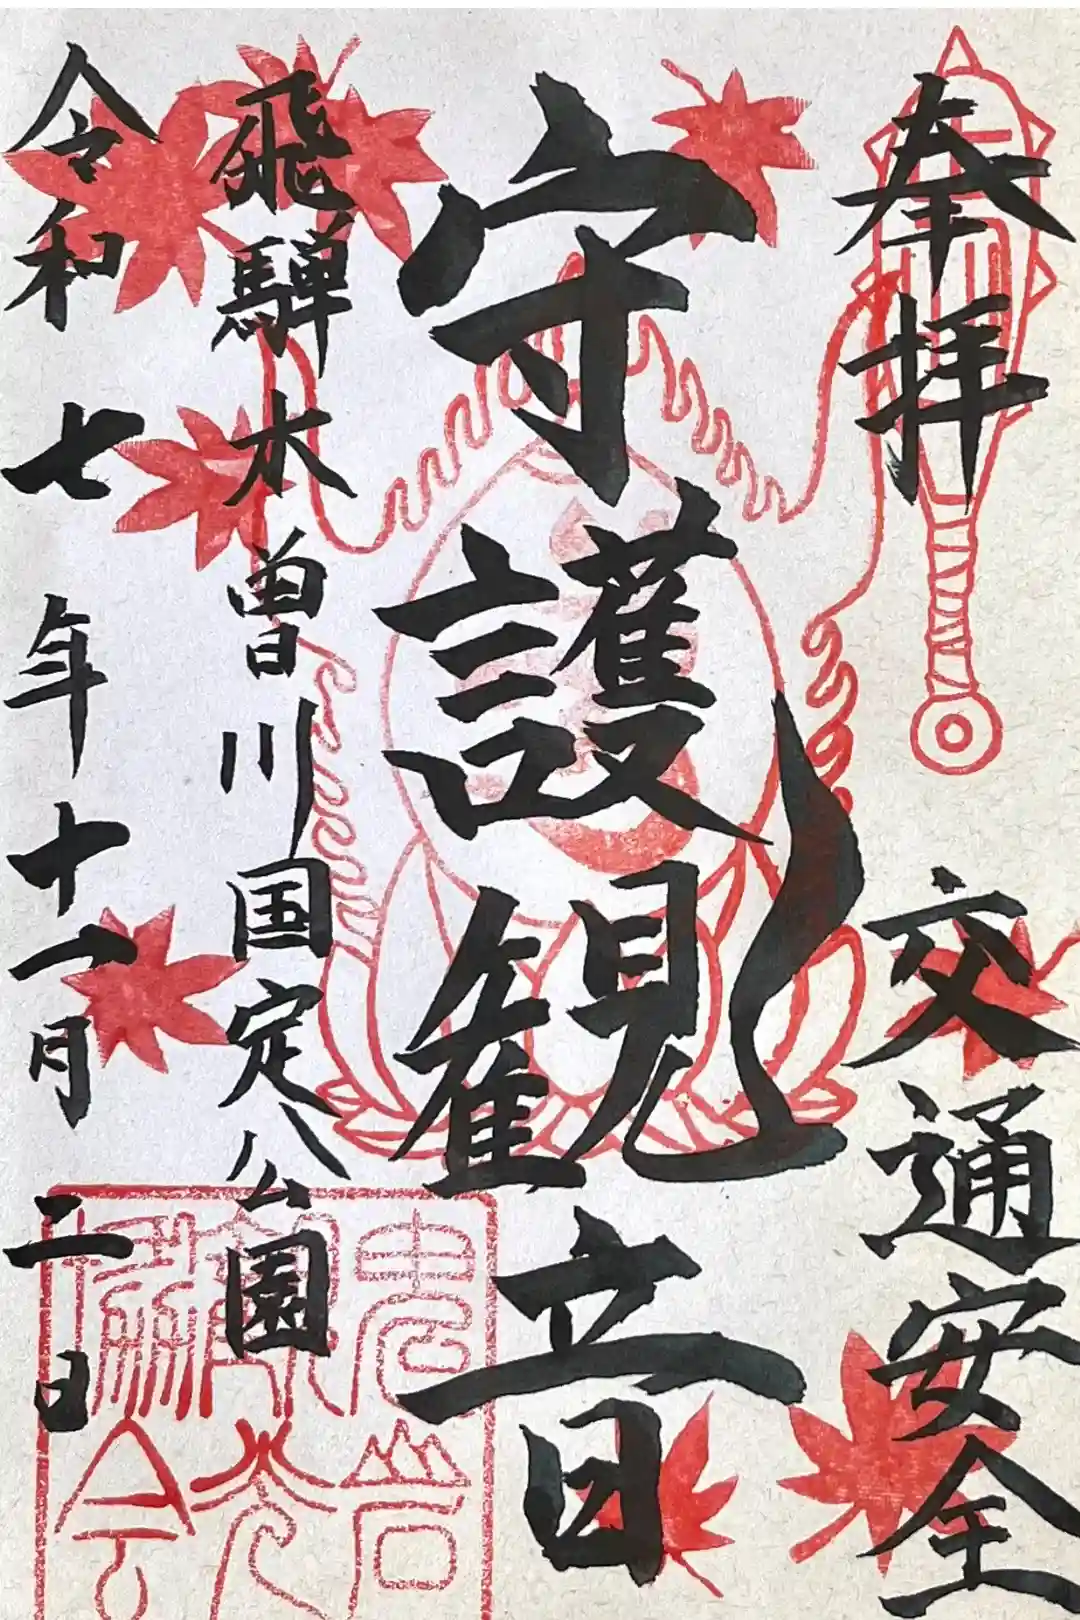 奉拝
交通安全
守護観音
飛騨木曽川国定公園
令和七年十一月二日
恵岩観光協会